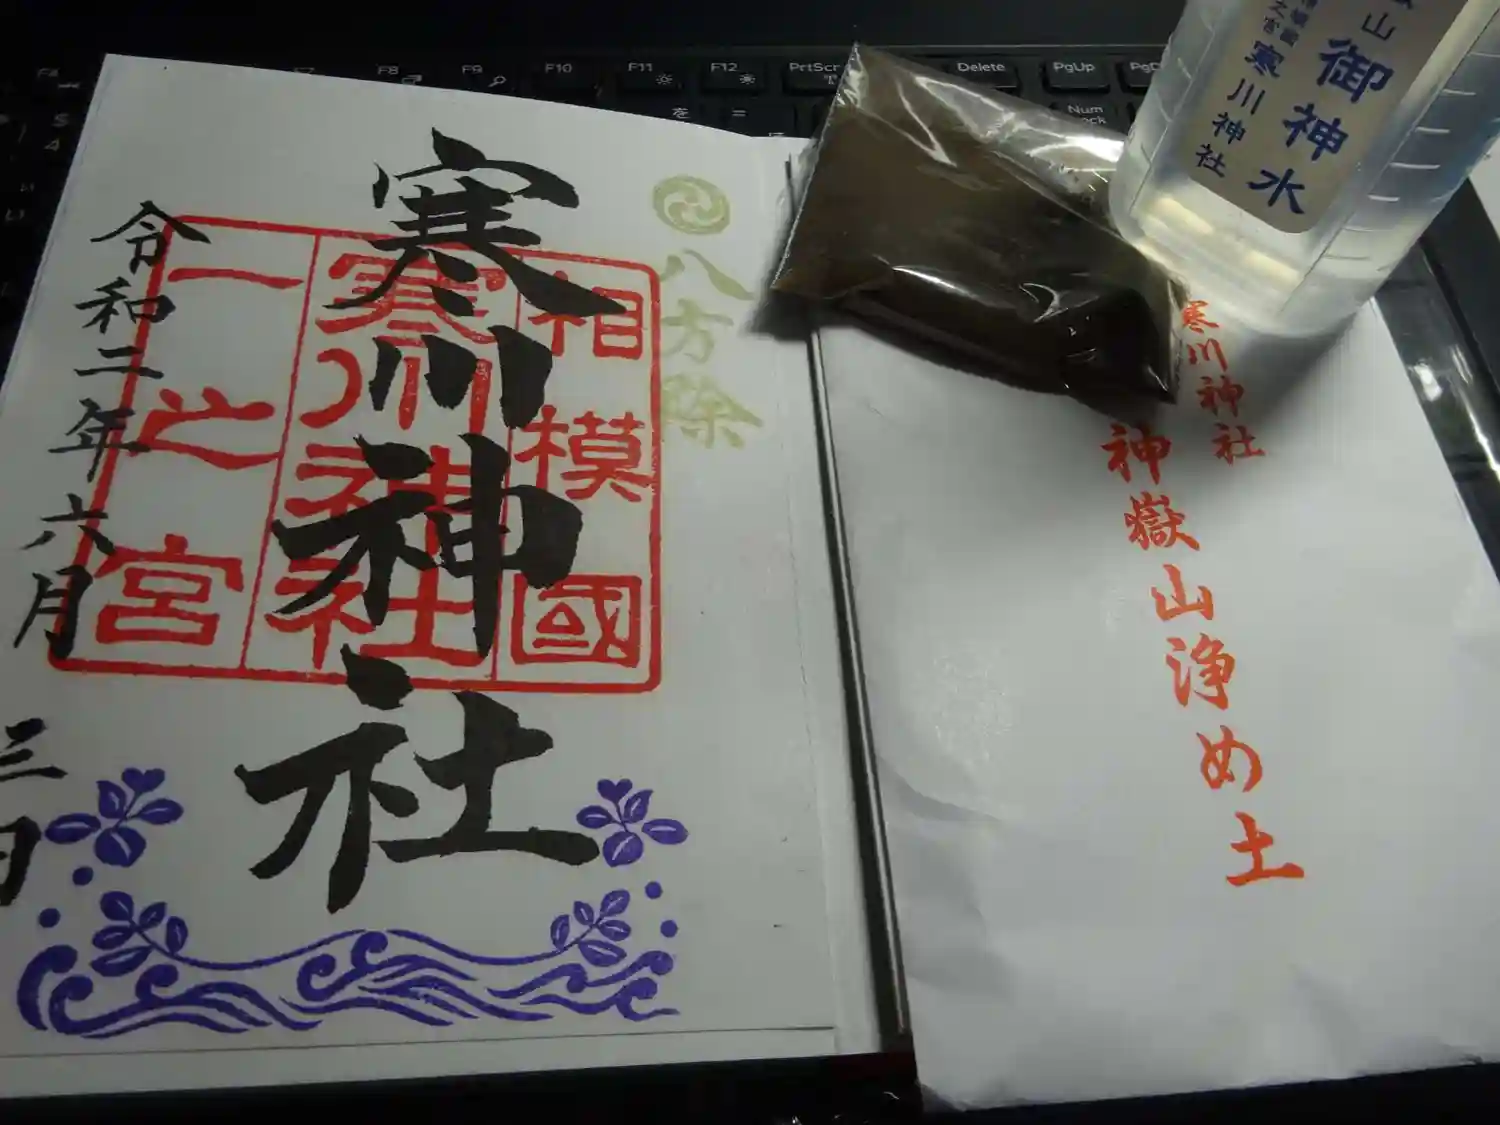 八方除
寒川神社
相模國
寒川神社
一之宮
令和二年六月
三日
山
御神水
寒川神社
寒川神社
神嶽山浄め土
F8
F9
F10
F11
F12
PrtScr
Delete
PgUp
Num
を